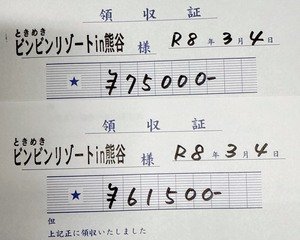 領収証
ときめき
ピンピンリゾートin熊谷 様 R8年3月4日
★ ¥75000-
領収証
ときめき
ピンピンリゾートin熊谷 様 R8年3月4日
★ ¥61500-
但
上記正に領収いたしました